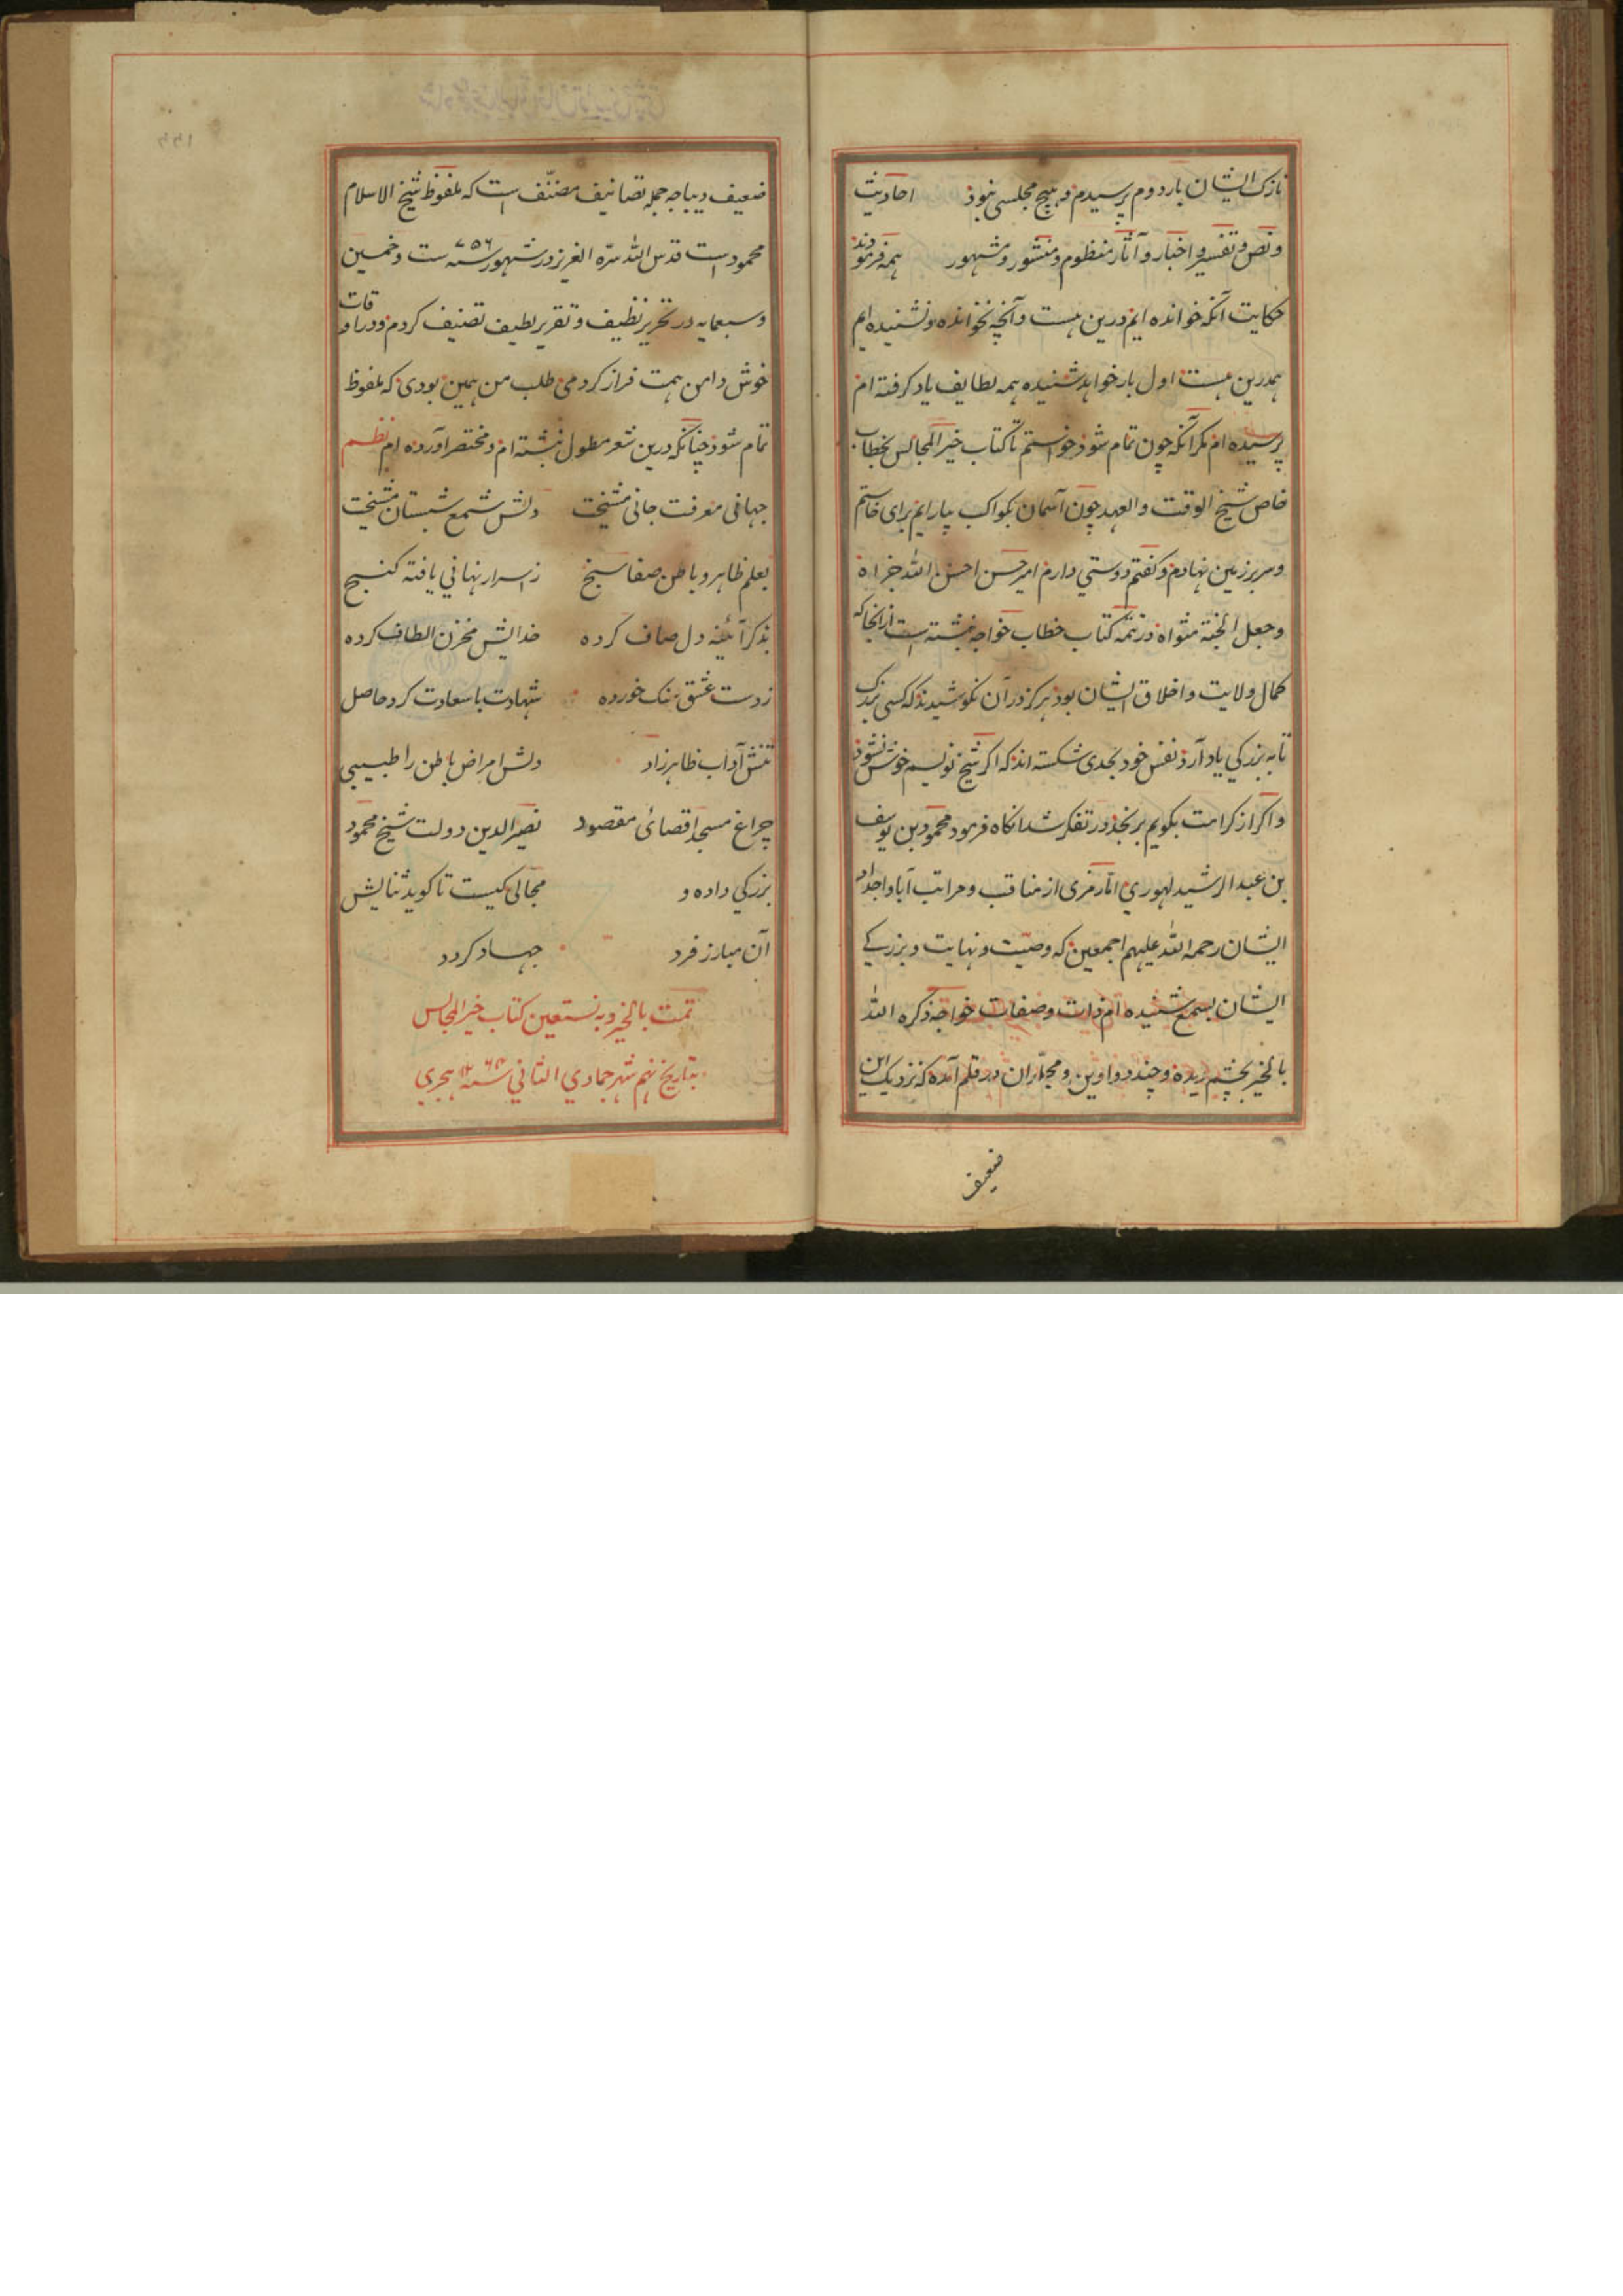 نازک ایشان بار دوم پرسیدم و هیچ مجلسی نبوذ احادیث
و نص و تفسیر و اخبار و آثار منظوم و منثور و مشهور همه فرموذند
حکایت آنکه خوانده ایم درین هست و آنچه نخوانده و نشنیده ایم
همدرین هست اول بار خواهد شنیده همه لطایف یاد گرفته ام
پرسیده ام مکر آنکه چون تمام شوذ خواستم تا کتاب خیر المجالس بخطاب
خاص شیخ الوقت والعهد چون آسمان بکواکب بیارایم برای خاستم
و سر بر زمین نهادم و کفتم دوستی دارم امیر حسن احسن الله جزاه
و جعل الجنة مثواه در تتمه کتاب خطاب خواجه نبشته است از انجا که
کمال ولایت و اخلاق ایشان بوذ هرکز در آن نکوشیدند که کسی بزرک
تا به بزرکی یاد آرذ نفس خود بحدی شکسته اند که اکر شیخ نویسم خوش نشوذ
و اکر از کرامت بکویم برنجد در تفکر شد انکاه فرمود محمود بن یوسف
بن عبد الرشید لهوری اثار مزی از مناقب و مراتب آبا و اجداد
ایشان رحمة الله علیهم اجمعین که وصیت و نهایت و بزرکی
ایشان بسمع شنیده ام ذات و صفات خواجه ذکره الله
بالخیر بچشم دیده و چند دواوین و مجلد از ان در قلم آمده که نزدیک این
ضعیف
ضعیف دیباجه جمله تصانیف مصنّف است که ملفوظ شیخ الاسلام
محمود است قدس الله سرّه العزیز در شهور سنه ۷۵۶ ست و خمسین
و سبعمایه در تحریر نظیف و تقریر لطیف تصنیف کردم و در اوقات
خوش دامن همت فراز کردمی طلب من همین بودی که ملفوظ
تمام شوذ چنانکه درین شعر مطول نبشته ام و مختصر آورده ام نظم
جهانی معرفت جانی مشیخت دلش شمع شبستان مشیخت
بعلم ظاهر و باطن صفا سنج ز اسرار نهانی یافته کنج
بذکر آئینه دل صاف کرده خدایش مخزن الطاف کرده
ز دست عشق سنک خورده شهادت با سعادت کرد حاصل
تنش آداب ظاهر زاد دلش امراض باطن را طبیبی
چراغ مسجد اقصائی مقصود نصیر الدین دولت شیخ محمود
بزرکی داده و مجالی کیست تا کوید ثنایش
آن مبارز فرد جهاد کردد
تمت بالخیر و به نستعین کتاب خیر المجالس
بتاریخ نهم شهر جمادی الثانی سنه هجری